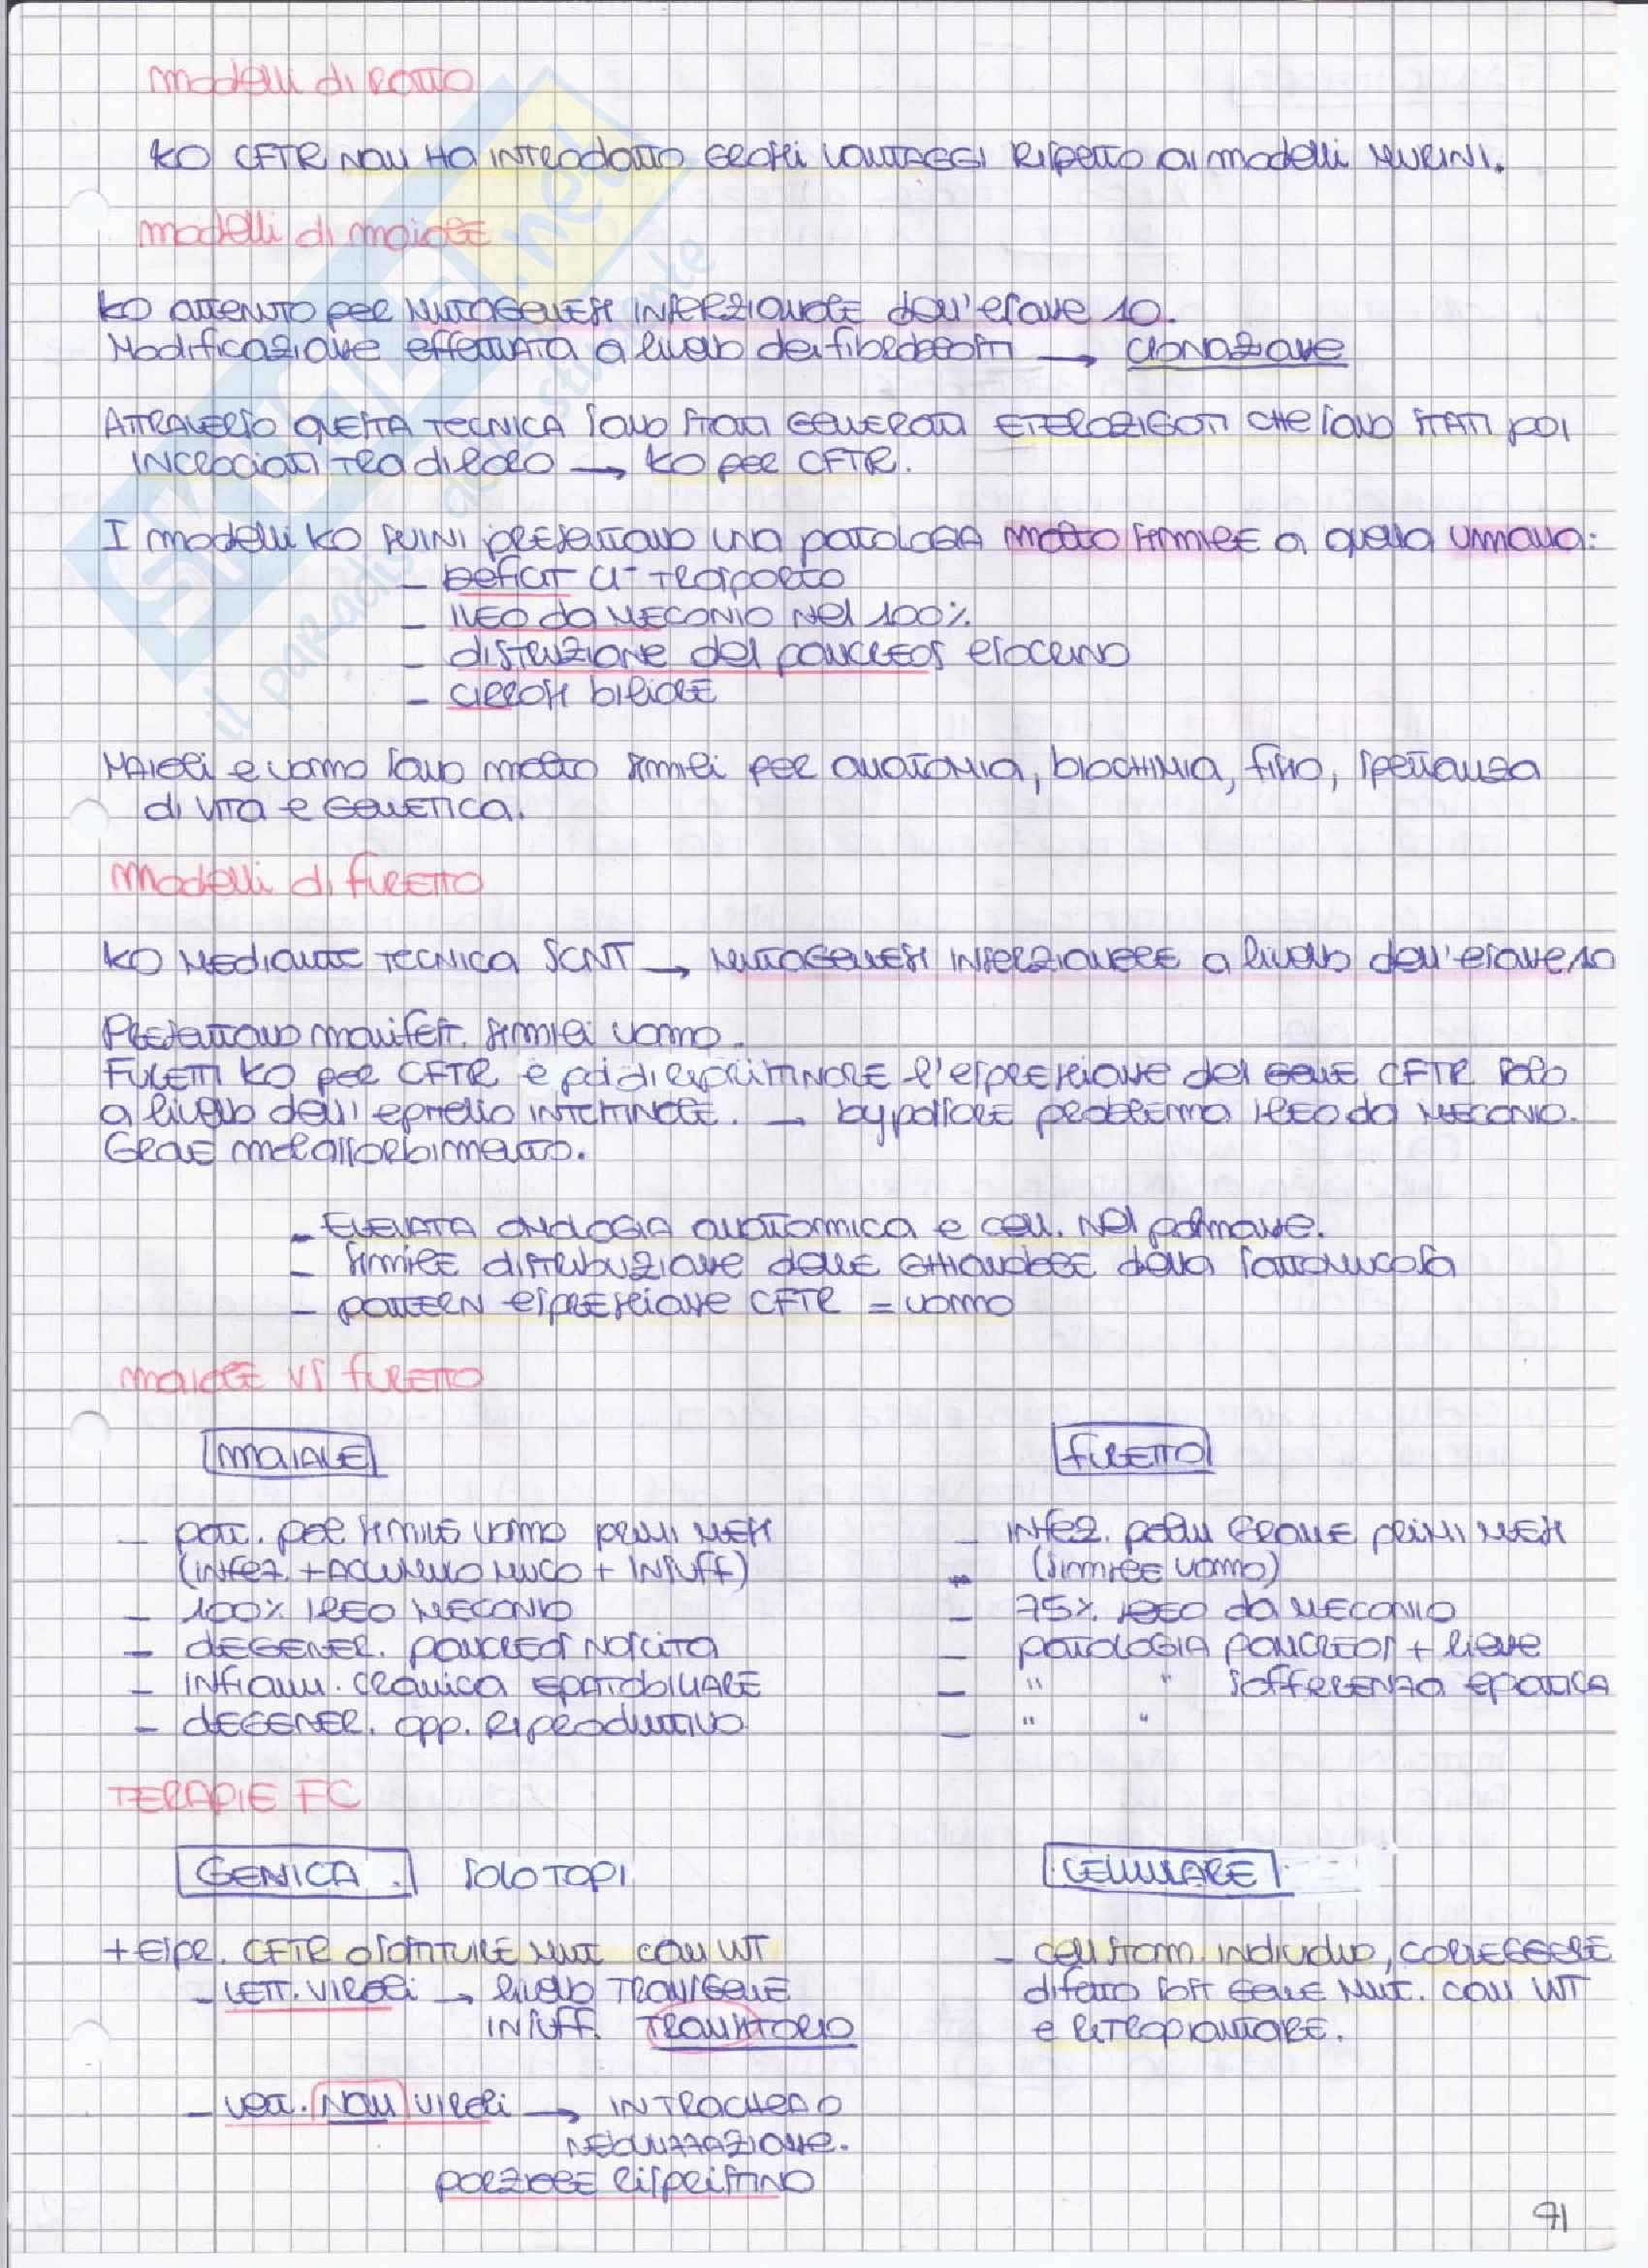 modelli di ratto
KO CFTR NON HA INTRODOTTO GROSSI VANTAGGI RISPETTO AI modelli MURINI.
modelli di maiale
KO ottenuto per MUTAGENESI INSERZIONALE dell'esone 10.
Modificazione effettuata a livello dei fibroblasti → clonazione
ATTRAVERSO QUESTA TECNICA sono stati GENERATI ETEROZIGOTI CHE sono STATI poi
INCROCIATI TRA di loro → KO per CFTR.
I modelli KO SUINI PRESENTANO una patologia molto simile a quella umana:
- Deficit Cl⁻ trasporto
- ILEO da MECONIO nel 100%
- distruzione del pancreas esocrino
- cirrosi biliare
Maiali e uomo sono molto simili per anatomia, biochimia, fisio, spettanza
di vita e genetica.
Modelli di furetto
KO MEDIANTE TECNICA SCNT → MUTAGENESI INSERZIONALE a livello dell'esone 10
Presentano manifest. simili uomo.
Furetti KO per CFTR e poi di ripristinare l'espressione del gene CFTR solo
a livello dell'epitelio INTESTINALE. → bypassare problema ILEO da MECONIO.
Grave malassorbimento.
- Elevata analogia anatomica e cell. nel polmone.
- simile distribuzione delle ghiandole della sottomucosa
- pattern espressione CFTR = uomo
maiale vs furetto
MAIALE
furetto
- pat. pol simile uomo primi mesi
(infez. + Accumulo muco + INSUFF)
- 100% ILEO MECONIO
- DEGENER. pancreas nascita
- INFIAMM. cronica EPATOBILIARE
- DEGENER. app. Riproduttivo
- INFEZ. polm grave primi mesi
- (simile uomo)
- 75% ILEO da MECONIO
- patologia pancreas + lieve
- " " sofferenza epatica
- " "
TERAPIE FC
GENICA. solo TOPI
CELLULARE
+ espr. CFTR o sostituire mut con WT
- vett. virali → livello transgene
insuff. transitorio
- vett. non virali → INTRACHEA O
NEBULIZZAZIONE.
parziale rispristino
- cell stam. individuo, correggere
difetto sost gene mut. con WT
e ritrapiantare.
91
SKUOLA.net
il paradiso dello studente